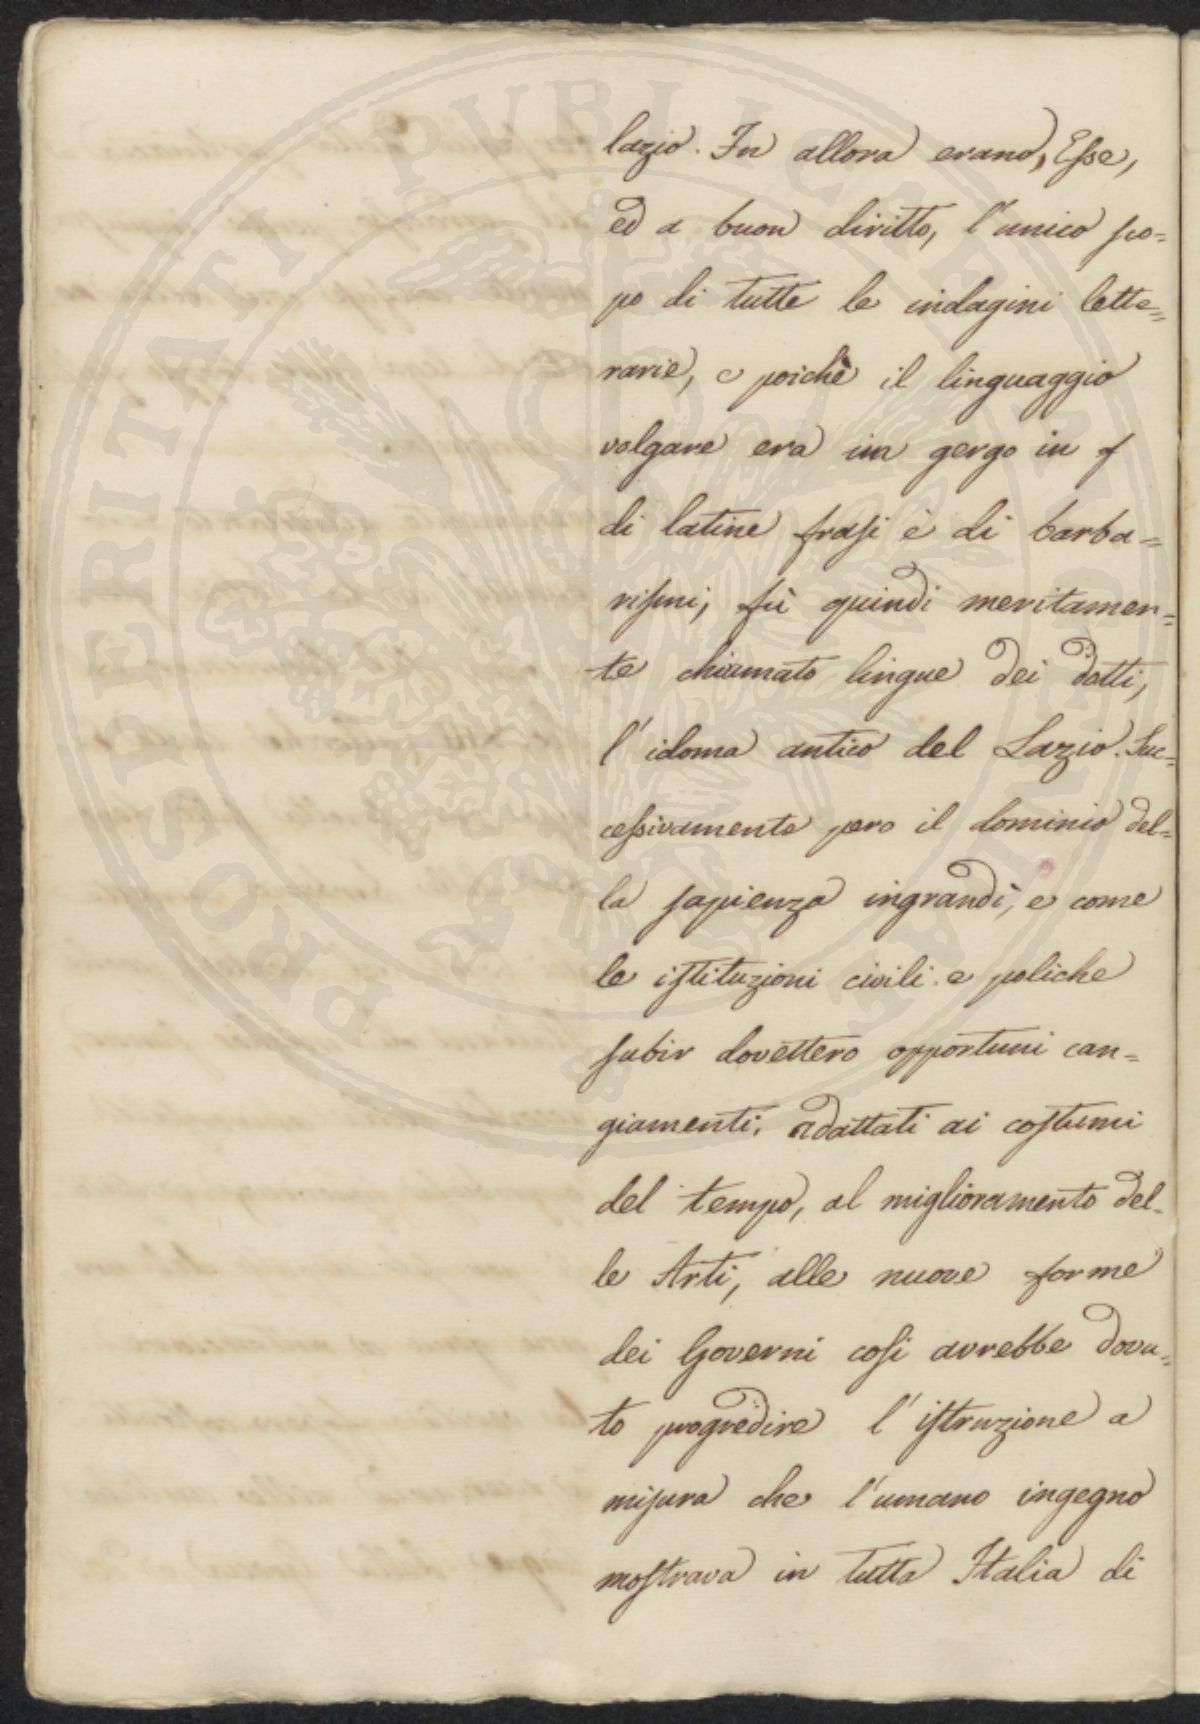 lazio. In allora erano, Esse,
ed a buon diritto, l'unico sco=
po di tutte le indagini lette=
rarie, e poichè il linguaggio
volgare era un gergo in
di latine frasi è di barba=
rismi, fù quindi meritamen=
te chiamato lingue dei dotti,
l'idoma antico del Lazio. Suc=
cessivamente pero il dominio del=
la sapienza ingrandì, e come
le istituzioni civili e poliche
subir dovettero opportuni can=
giamenti, adattati ai costumi
del tempo, al miglioramento del=
le Arti, alle nuove forme
dei Governi così avrebbe dovu=
to progredire l'istruzione a
misura che l'umano ingegno
mostrava in tutta Italia di
PROSPERITATI PVBLICAE